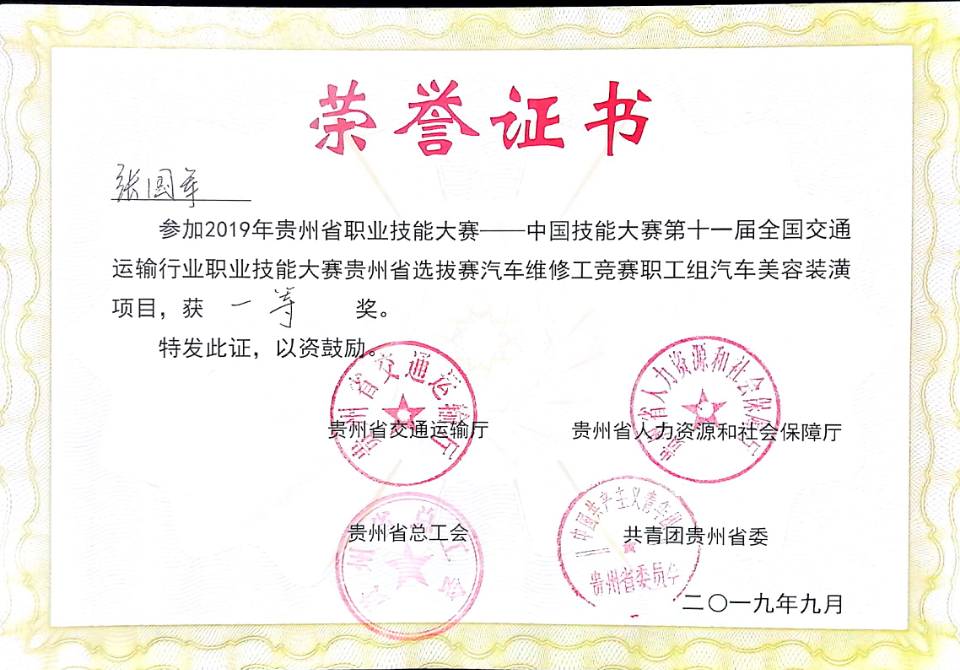 荣誉证书
张国军
参加2019年贵州省职业技能大赛——中国技能大赛第十一届全国交通
运输行业职业技能大赛贵州省选拔赛汽车维修工竞赛职工组汽车美容装潢
项目，获 一等 奖。
特发此证，以资鼓励。
贵州省交通运输厅
贵州省交通运输厅
贵州省人力资源和社会保障厅
贵州省人力资源和社会保障厅
贵州省总工会
贵州省总工会
中国共产主义青年团
贵州省委员会
共青团贵州省委
二〇一九年九月